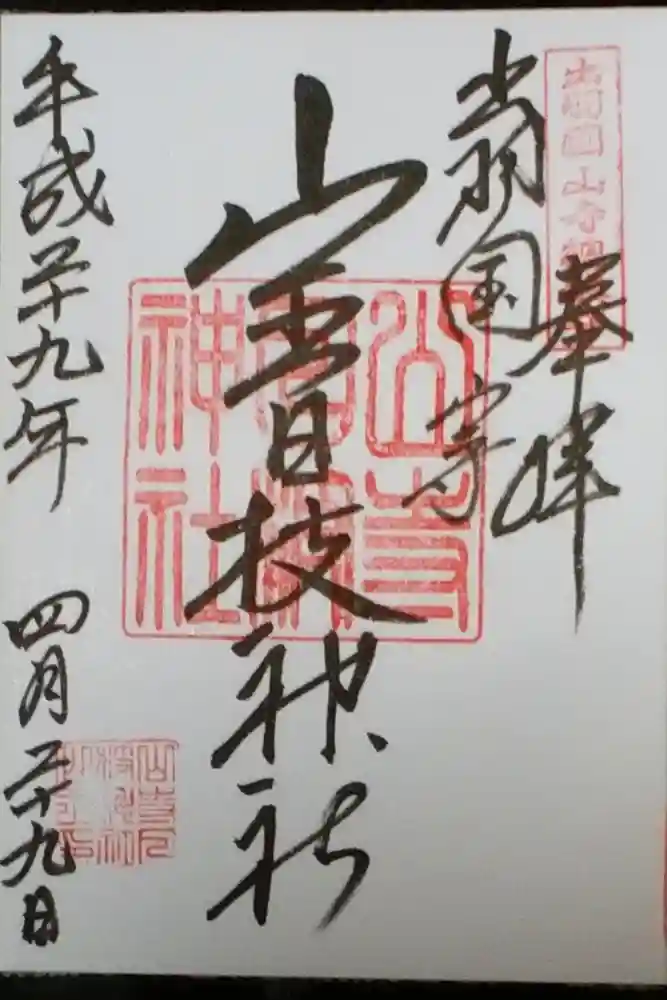 出羽國山寺
奉拝
出羽国山寺
山王日枝神社
山寺
日枝
神社
平成二十九年 四月二十九日